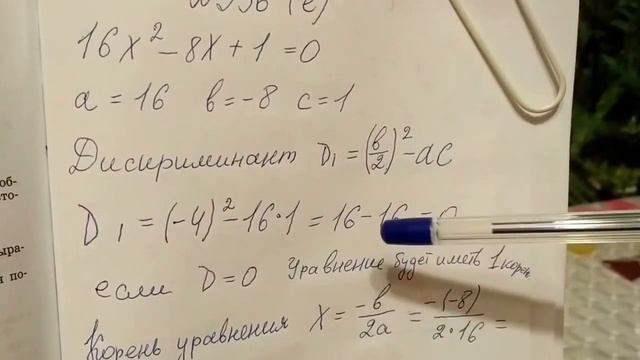 16x² - 8x + 1 = 0
a = 16 в = -8 c = 1
Дискриминант D₁ = (в/2)² - ac
D₁ = (-4)² - 16·1 = 16 - 16 = 0
если D = 0 Уравнение будет иметь 1 корень
Корень уравнения x = -в/2a = -(-8)/2·16 =